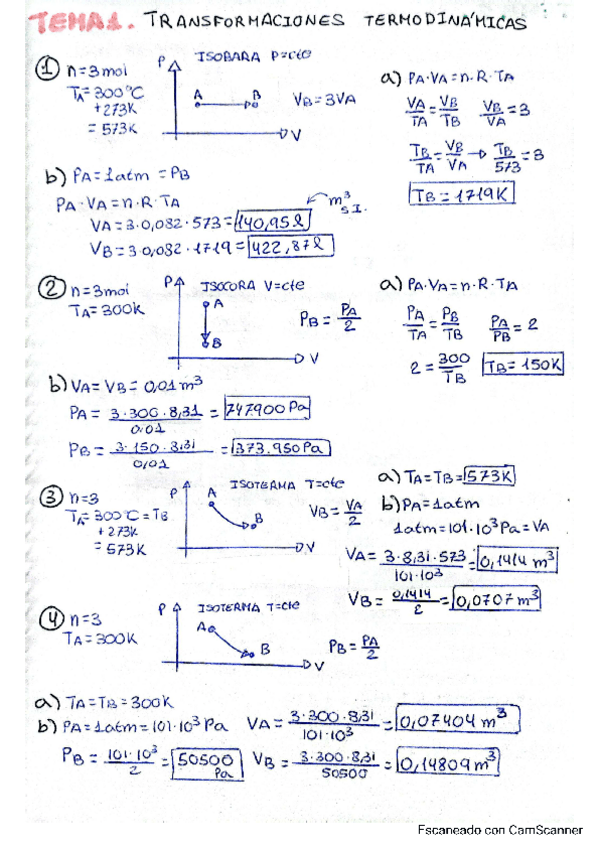 TEMA 1. TRANSFORMACIONES TERMODINÁMICAS
① n=3mol
TA=300ºC
+273K
=573K
P
ISOBARA P=cte
A B
V
VB=3VA
a) PA·VA=n·R·TA
VA/TA = VB/TB VB/VA = 3
TB/TA = VB/VA → TB/573 = 3
TB=1719K
b) PA=1atm=PB
PA·VA=n·R·TA
m³ S.I.
VA=3·0,082·573=140,95l
VB=3·0,082·1719=422,87l
② n=3mol
TA=300K
P
ISOCORA V=cte
A
B
V
PB = PA/2
a) PA·VA=n·R·TA
PA/TA = PB/TB PA/PB = 2
2 = 300/TB TB=150K
b) VA=VB=0,01m³
PA = 3·300·8,31/0,01 = 747900 Pa
PB = 3·150·8,31/0,01 = 373.950 Pa
③ n=3
TA=300ºC=TB
+273K
=573K
P
ISOTERMA T=cte
A
B
V
VB = VA/2
a) TA=TB=573K
b) PA=1atm
1atm=101·10³Pa=VA
VA = 3·8,31·573/101·10³ = 0,1414 m³
VB = 0,1414/2 = 0,0707 m³
④ n=3
TA=300K
P
ISOTERMA T=cte
A
B
V
PB = PA/2
a) TA=TB=300K
b) PA=1atm=101·10³Pa VA = 3·300·8,31/101·10³ = 0,07404 m³
PB = 101·10³/2 = 50500 Pa VB = 3·300·8,31/50500 = 0,14809 m³
Escaneado con CamScanner